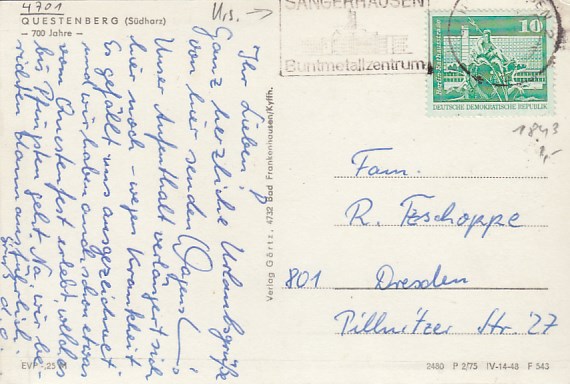 4701
QUESTENBERG (Südharz)
— 700 Jahre —
Urs. →
SANGERHAUSEN
Buntmetallzentrum
10
DEUTSCHE DEMOKRATISCHE REPUBLIK
1843
Ihr Lieben
Ganz herzliche Urlaubsgrüße
von hier senden
Unser Aufenthalt verlängert sich
hier noch - wegen Krankheit
Es gefällt uns ausgezeichnet
und wir haben auch schon etwas
vom Questenfest erlebt, welches
bis Pfingsten geht. Na, wir be-
richten dann ausführlich
Verlag Görtz, 4732 Bad Frankenhausen/Kyffh.
Fam.
R. Tzschoppe
801 Dresden
Pillnitzer Str. 27
EVP -,25 M
2480 P 2/75 IV-14-48 F 543